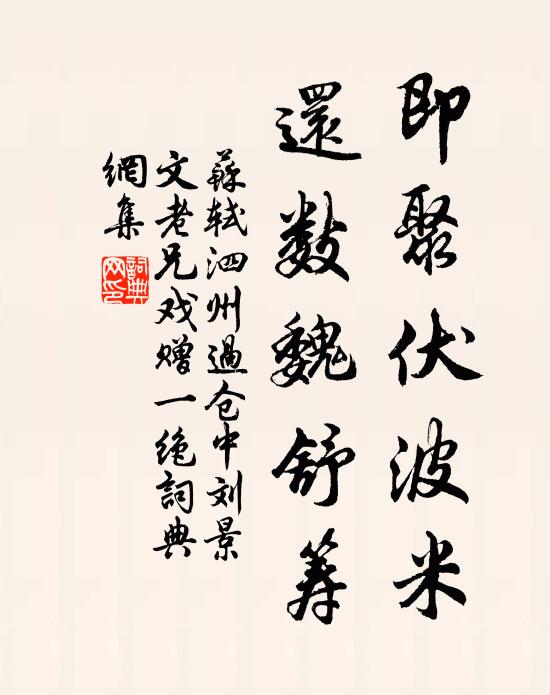 即聚伏波米
還数魏舒筹
蘇轼泗州過仓中刘景
文老兄戏赠一绝詞典
網集
詞典网印